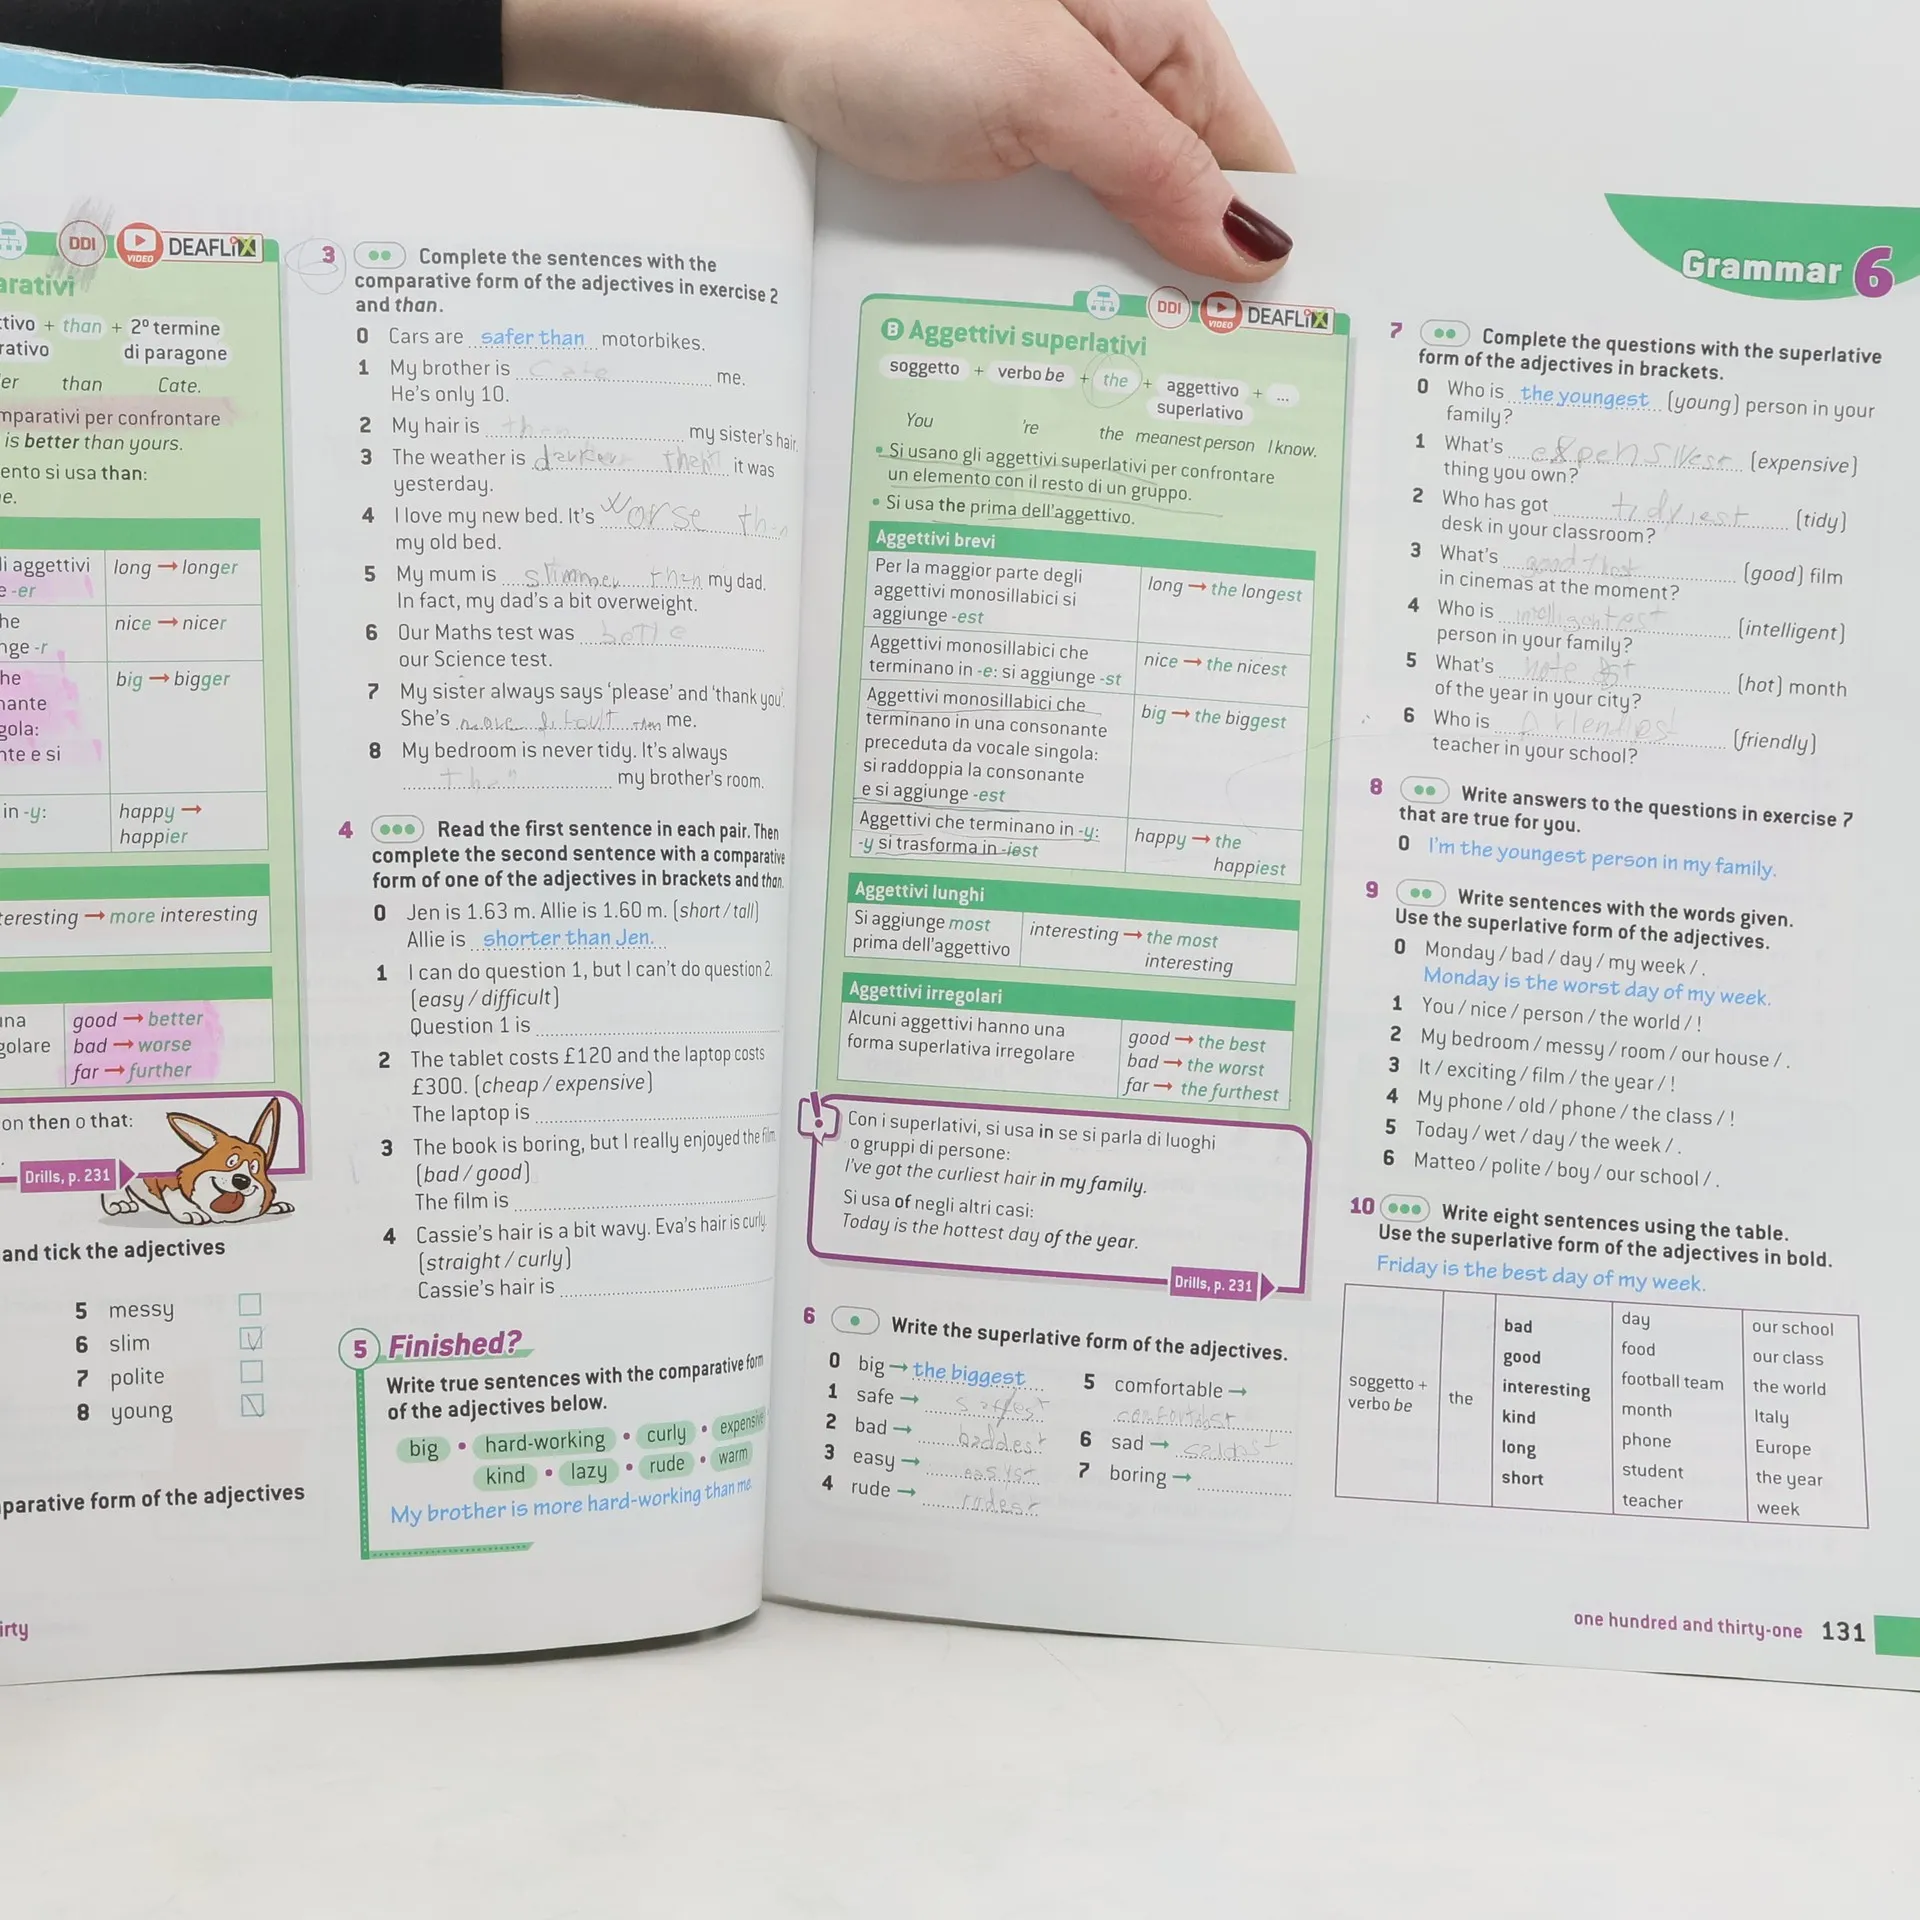 DDI
VIDEO
DEAFLIX
arativi
tivo + than + 2º termine
rativo di paragone
er than Cate.
mparativi per confrontare
is better than yours.
ento si usa than:
e.
li aggettivi long → longer
e -er
he nice → nicer
nge -r
he big → bigger
nante
gola:
nte e si
in -y: happy →
happier
teresting → more interesting
una good → better
golare bad → worse
far → further
on then o that:
Drills, p. 231
and tick the adjectives
5 messy
6 slim
7 polite
8 young
parative form of the adjectives
irty
3 Complete the sentences with the
comparative form of the adjectives in exercise 2
and than.
0 Cars are safer than motorbikes.
1 My brother is me.
He's only 10.
2 My hair is than my sister's hair.
3 The weather is than it was
yesterday.
4 I love my new bed. It's worse than
my old bed.
5 My mum is slimmer then my dad.
In fact, my dad's a bit overweight.
6 Our Maths test was
our Science test.
7 My sister always says 'please' and 'thank you'.
She's more me.
8 My bedroom is never tidy. It's always
then my brother's room.
4 Read the first sentence in each pair. Then
complete the second sentence with a comparative
form of one of the adjectives in brackets and than.
0 Jen is 1.63 m. Allie is 1.60 m. (short / tall)
Allie is shorter than Jen.
1 I can do question 1, but I can't do question 2.
(easy / difficult)
Question 1 is
2 The tablet costs £120 and the laptop costs
£300. (cheap / expensive)
The laptop is
3 The book is boring, but I really enjoyed the film.
(bad / good)
The film is
4 Cassie's hair is a bit wavy. Eva's hair is curly.
(straight / curly)
Cassie's hair is
5 Finished?
Write true sentences with the comparative form
of the adjectives below.
big • hard-working • curly • expensive
kind • lazy • rude • warm
My brother is more hard-working than me.
Grammar 6
DDI
VIDEO
DEAFLIX
B Aggettivi superlativi
soggetto + verbo be + the + aggettivo + ...
superlativo
You 're the meanest person I know.
• Si usano gli aggettivi superlativi per confrontare
un elemento con il resto di un gruppo.
• Si usa the prima dell'aggettivo.
Aggettivi brevi
Per la maggior parte degli long → the longest
aggettivi monosillabici si
aggiunge -est
Aggettivi monosillabici che nice → the nicest
terminano in -e: si aggiunge -st
Aggettivi monosillabici che big → the biggest
terminano in una consonante
preceduta da vocale singola:
si raddoppia la consonante
e si aggiunge -est
Aggettivi che terminano in -y: happy → the
-y si trasforma in -iest happiest
Aggettivi lunghi
Si aggiunge most interesting → the most
prima dell'aggettivo interesting
Aggettivi irregolari
Alcuni aggettivi hanno una good → the best
forma superlativa irregolare bad → the worst
far → the furthest
!
Con i superlativi, si usa in se si parla di luoghi
o gruppi di persone:
I've got the curliest hair in my family.
Si usa of negli altri casi:
Today is the hottest day of the year.
Drills, p. 231
6 Write the superlative form of the adjectives.
0 big → the biggest
1 safe →
2 bad → baddest
3 easy → easyst
4 rude → rudest
5 comfortable →
6 sad →
7 boring →
7 Complete the questions with the superlative
form of the adjectives in brackets.
0 Who is the youngest (young) person in your
family?
1 What's expensivest (expensive)
thing you own?
2 Who has got tidyiest (tidy)
desk in your classroom?
3 What's (good) film
in cinemas at the moment?
4 Who is intelligentest (intelligent)
person in your family?
5 What's (hot) month
of the year in your city?
6 Who is (friendly)
teacher in your school?
8 Write answers to the questions in exercise 7
that are true for you.
0 I'm the youngest person in my family.
9 Write sentences with the words given.
Use the superlative form of the adjectives.
0 Monday / bad / day / my week / .
Monday is the worst day of my week.
1 You / nice / person / the world / !
2 My bedroom / messy / room / our house / .
3 It / exciting / film / the year / !
4 My phone / old / phone / the class / !
5 Today / wet / day / the week / .
6 Matteo / polite / boy / our school / .
10 Write eight sentences using the table.
Use the superlative form of the adjectives in bold.
Friday is the best day of my week.
soggetto +
verbo be
the
bad
good
interesting
kind
long
short
day
food
football team
month
phone
student
teacher
our school
our class
the world
Italy
Europe
the year
week
one hundred and thirty-one 131